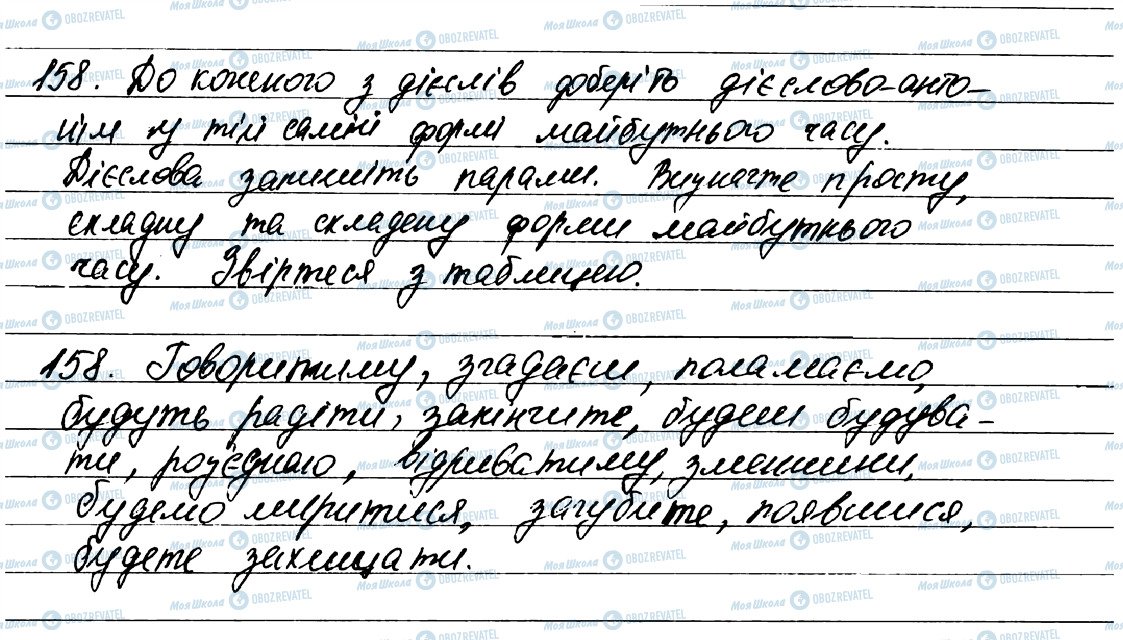 158. До кожного з дієслів доберіть дієслово-анто-
нім у тій самій формі майбутнього часу.
Дієслова запишіть парами. Визначте просту,
складну та складену форми майбутнього
часу. Звіртеся з таблицею.
158. Говоритиму, згадаєш, поламаємо,
будуть радіти, закінчите, будеш будува-
ти, роз'єднаю, відриватиму, зменшиш,
будемо миритися, загубите, появишся,
будете захищати.